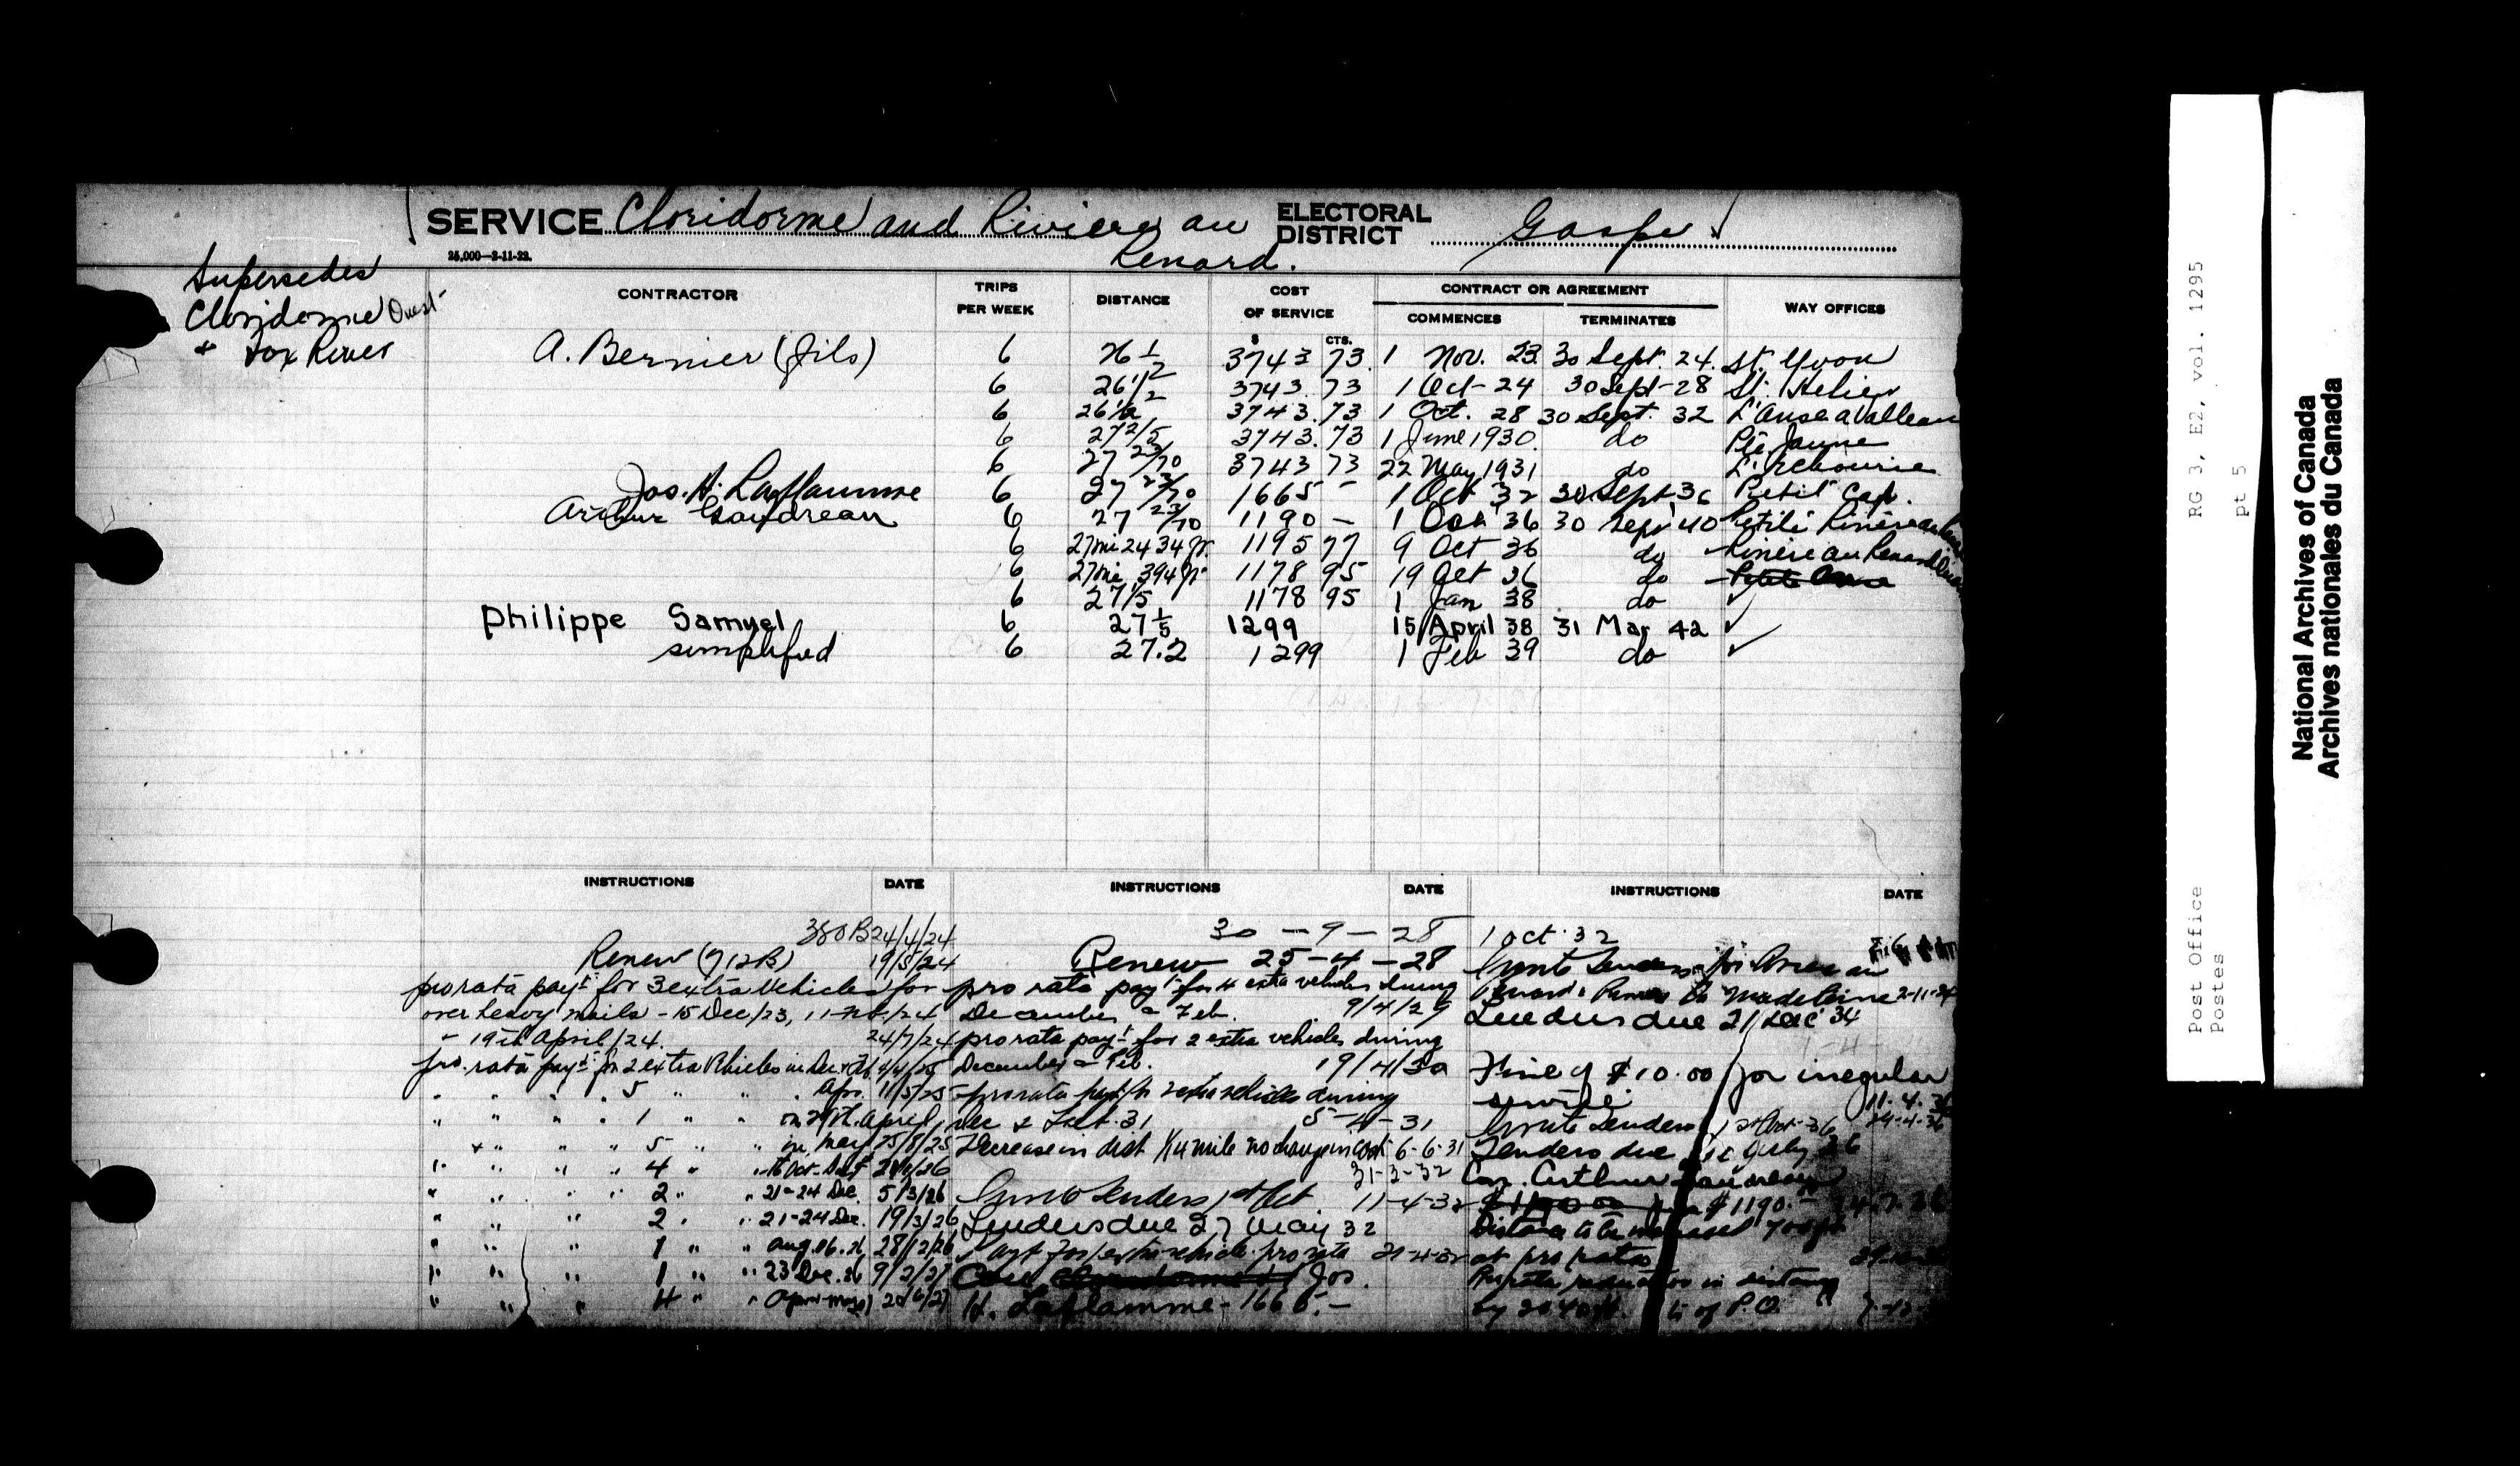 SERVICE Cloridorme and Riviere au Renard. ELECTORAL DISTRICT Gaspe
25,000—2-11-22.
Supersedes
Cloridorme Ouest
+ Fox River
CONTRACTOR TRIPS PER WEEK DISTANCE COST OF SERVICE CONTRACT OR AGREEMENT COMMENCES TERMINATES WAY OFFICES
$ CTS.
A. Bernier (fils) 6 26 1/2 3743 73 1 Nov. 23 30 Sept. 24. St. Yvon
6 26 1/2 3743.73 1 Oct-24 30 Sept-28 St. Helier
6 26 1/2 3743.73 1 Oct. 28 30 Sept. 32 L'Anse a Valleau
6 27 2/5 3743.73 1 June 1930 do Pte Jaune
6 27 23/70 3743 73 22 May 1931 do L'Echourie
Jos. H. Laflamme 6 27 23/70 1665 - 1 Oct 32 30 Sept 36 Petit Cap.
Arthur Gaudreau 6 27 23/70 1190 — 1 Oct 36 30 Sept 40 Petite Riviere au
6 27 mi 2434 1195 77 9 Oct 36 do Riviere au Renard
6 27 mi 394 1178 95 19 Oct 36 do
6 27 1/5 1178 95 1 Jan 38 do ✓
Philippe Samuel 6 27 1/5 1299 15 April 38 31 Mar 42 ✓
simplified 6 27.2 1299 1 Feb 39 do ✓
INSTRUCTIONS DATE
380B 24/4/24
Renew (712B) 19/5/24
pro rata payt for 3 extra vehicles for
over heavy mails - 15 Dec/23, 11-
- 19th April/24. 24/7/24
pro. rata payt for 2 extra vehicles in Dec
" " " " 5 " " Apr. 11/5/25
" " " " 1 " " on 29th April,
+ " " " 5 " " in May 25/8/25
" " " " 4 "
" " " " 2 " " 21-24 Dec. 5/3/26
" " " 2 " " 21-24 Dec. 19/3/26
" " " 1 " " 28/12/26
" " " 1 " " 23 Dec. 26 9/2/27
" " " 4 "
INSTRUCTIONS DATE
30 - 9 - 28
Renew 25-4-28
pro rata payt for 4 extra vehicles during
December & Feb. 9/4/29
pro rata payt for 2 extra vehicles during
December & Feb. 19/4/30
pro rata payt for 2 extra vehicles during
Dec & Feb. 31 5-4-31
Decrease in dist 1/4 mile no change in cost 6-6-31
31-3-32
Invite Tenders 1st Oct. 11-4-32
Tenders due 27 May 32
Payt for 1 extra vehicle pro rata 21-4-32
Jos.
H. Laflamme - 1665.—
INSTRUCTIONS DATE
1 Oct. 32
Invite Tenders for Riviere au
Renard Madeleine 2-11-34
Tenders due 21 Dec 34
Fine of $10.00 for irregular
service. 11.4.36
Invite Tenders 1st Oct-36 24-4-36
Tenders due July 36
Con. Arthur Gaudreau
$1190.—
Distance to be increased
at pro rata
Pro rata reduction in distance
by of P.O.
Post Office
Postes
RG 3, E2, vol. 1295
pt 5
National Archives of Canada
Archives nationales du Canada